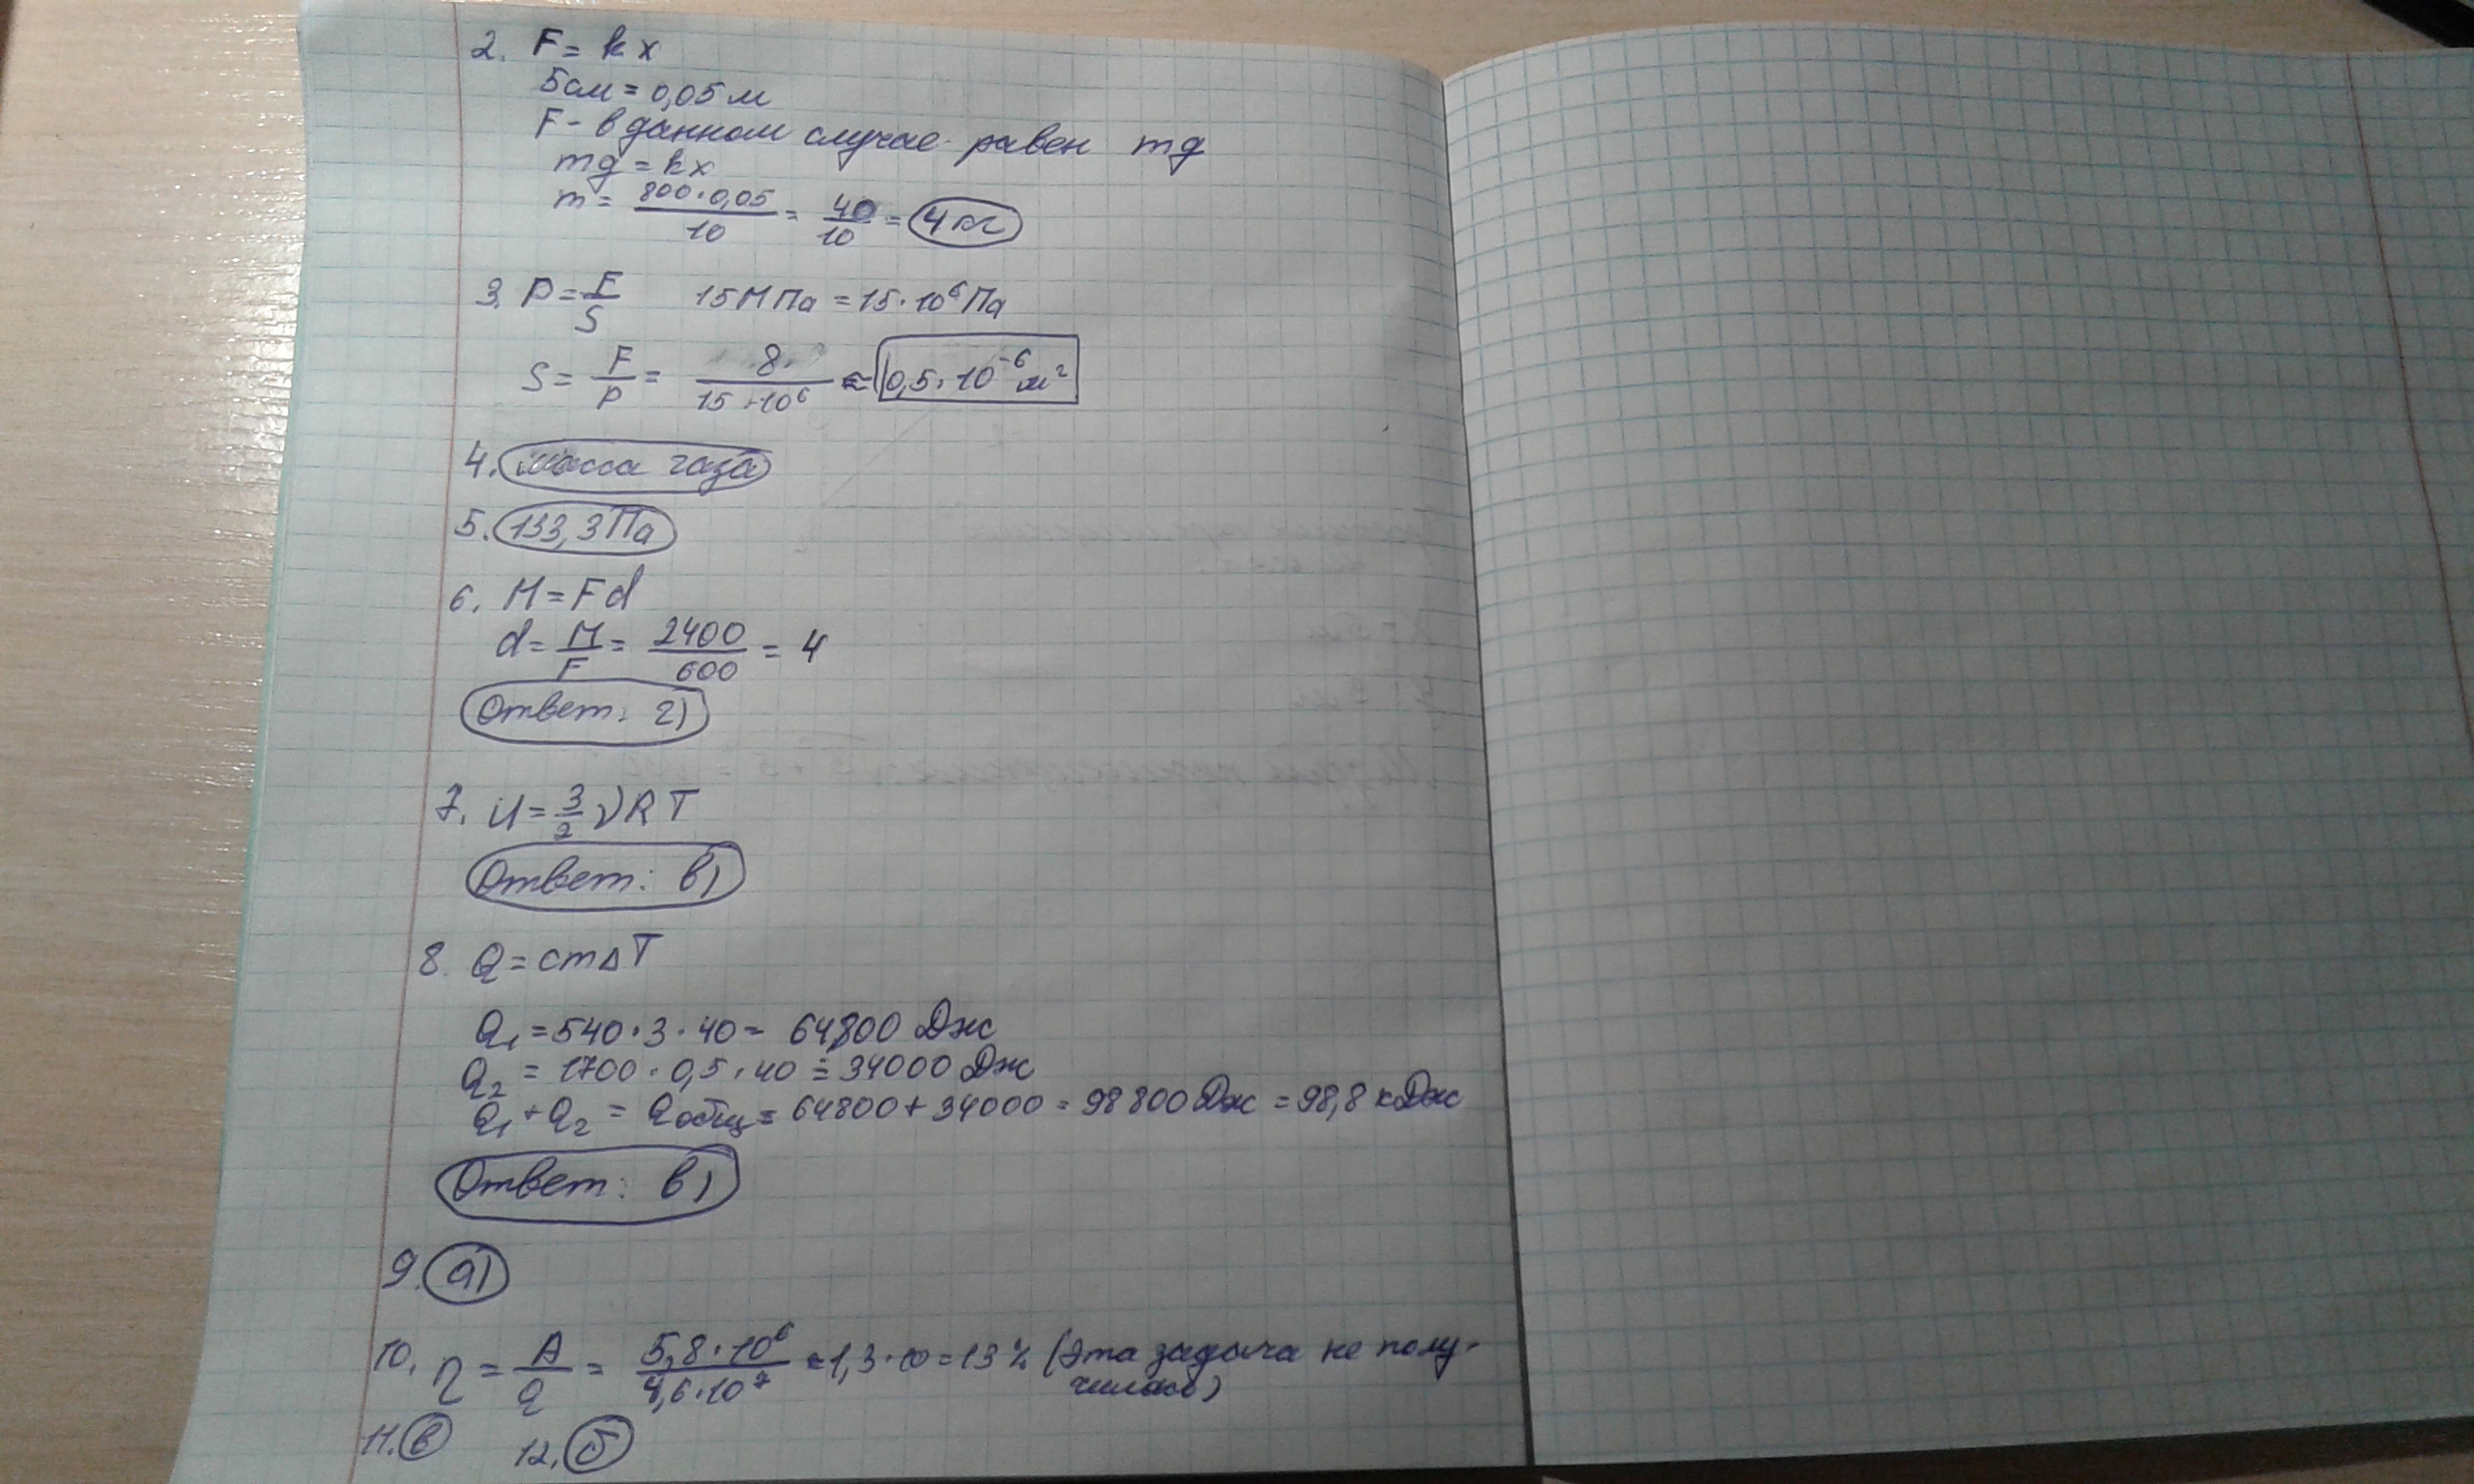 2. F = kx
5см = 0,05 м
F - в данном случае равен mg
mg = kx
m = 800·0,05/10 = 40/10 = 4 кг
3. P = F/S 15 МПа = 15·10⁶ Па
S = F/P = 8/15·10⁶ ≈ 0,5·10⁻⁶ м²
4. масса газа
5. 133,3 Па
6. M = Fd
d = M/F = 2400/600 = 4
Ответ: г)
7. U = 3/2 νRT
Ответ: в)
8. Q = cmΔT
Q₁ = 540·3·40 = 64800 Дж
Q₂ = 1700·0,5·40 = 34000 Дж
Q₁ + Q₂ = Qобщ = 64800 + 34000 = 98800 Дж = 98,8 кДж
Ответ: в)
9. а)
10. η = A/Q = 5,8·10⁶/4,6·10⁷ ≈ 1,3·10 = 13% (Эта задача не полу-
чилась)
11. в 12. б